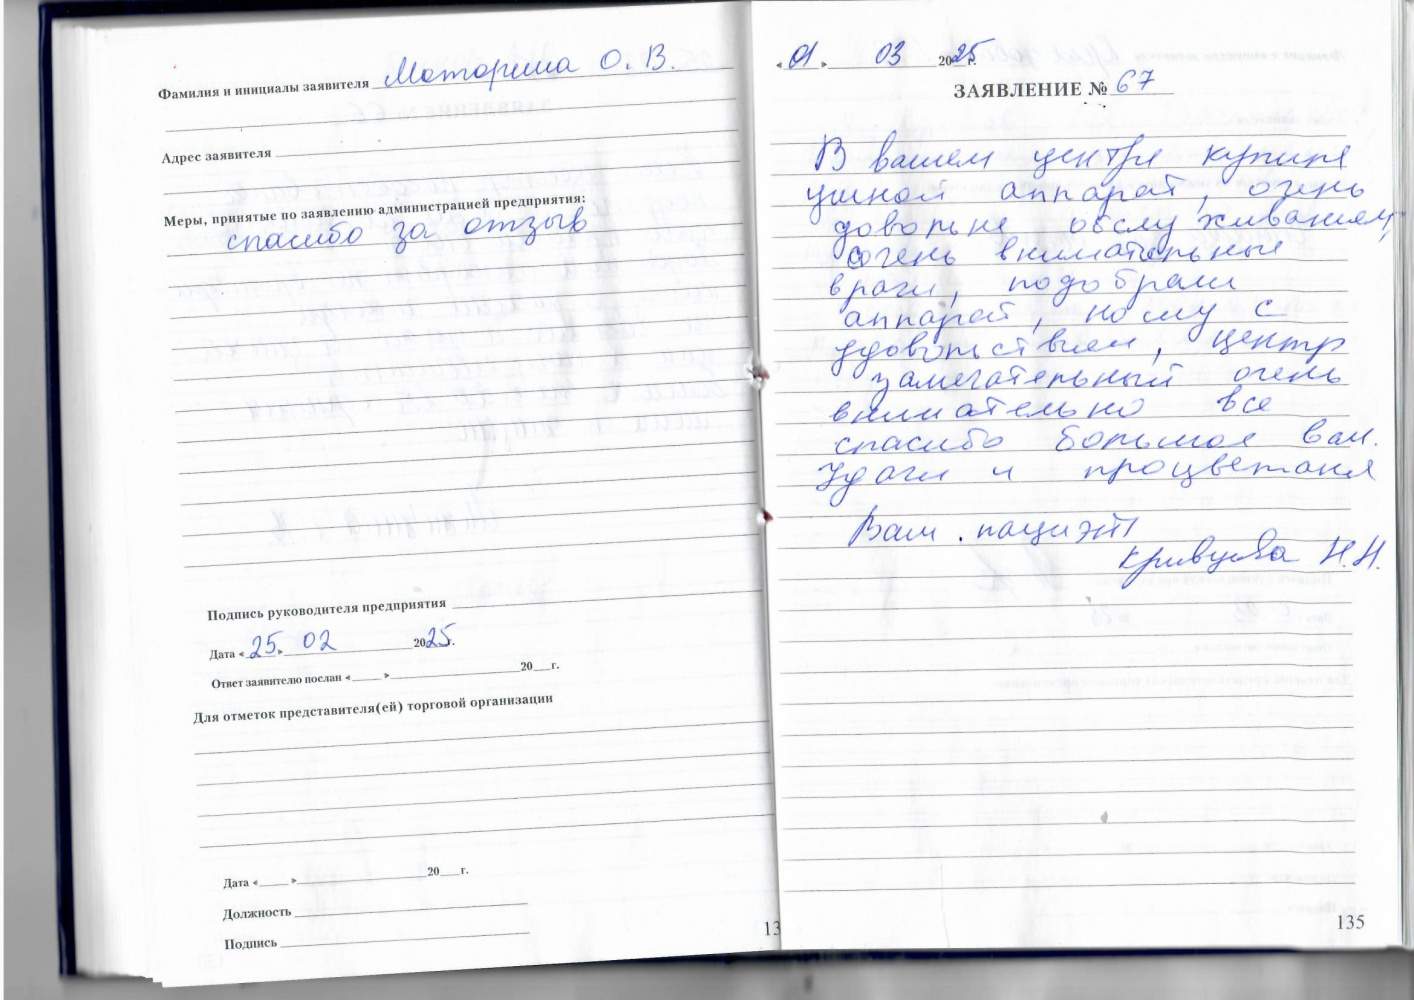 Фамилия и инициалы заявителя Моторина О. В.
Адрес заявителя
Меры, принятые по заявлению администрацией предприятия:
спасибо за отзыв
Подпись руководителя предприятия
Дата «25» 02 2025г.
Ответ заявителю послан «___» ___ 20___г.
Для отметок представителя(ей) торговой организации
Дата «___» ___ 20___г.
Должность
Подпись
13
«01» 03 2025г.
ЗАЯВЛЕНИЕ № 67
В вашем центре купили
ушной аппарат, очень
довольне обслуживанием,
очень внимательные
врачи, подобрали
аппарат, ношу с
удовольствием, центр
замечательный очень
внимательно все
спасибо большое вам.
Удачи и процветаня
Ваш . пациэнт
Кривцова Н.Н.
135